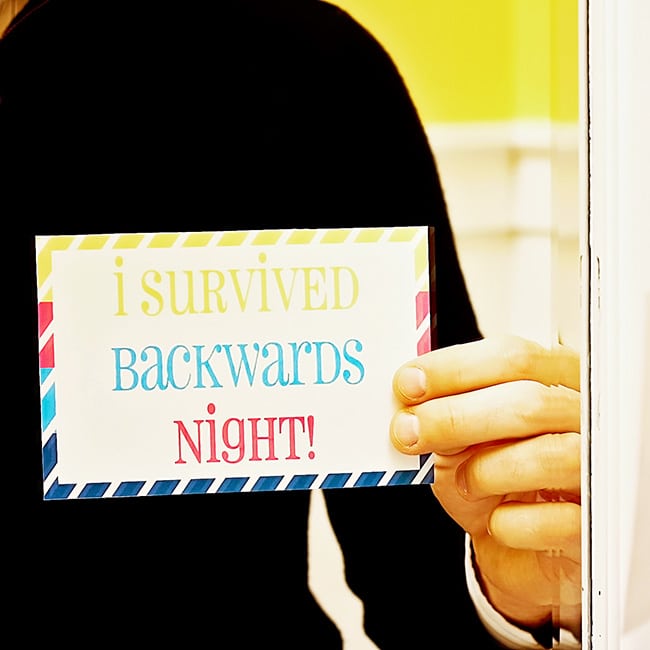 i SURViVED
BACKWARDS
NiGHT!